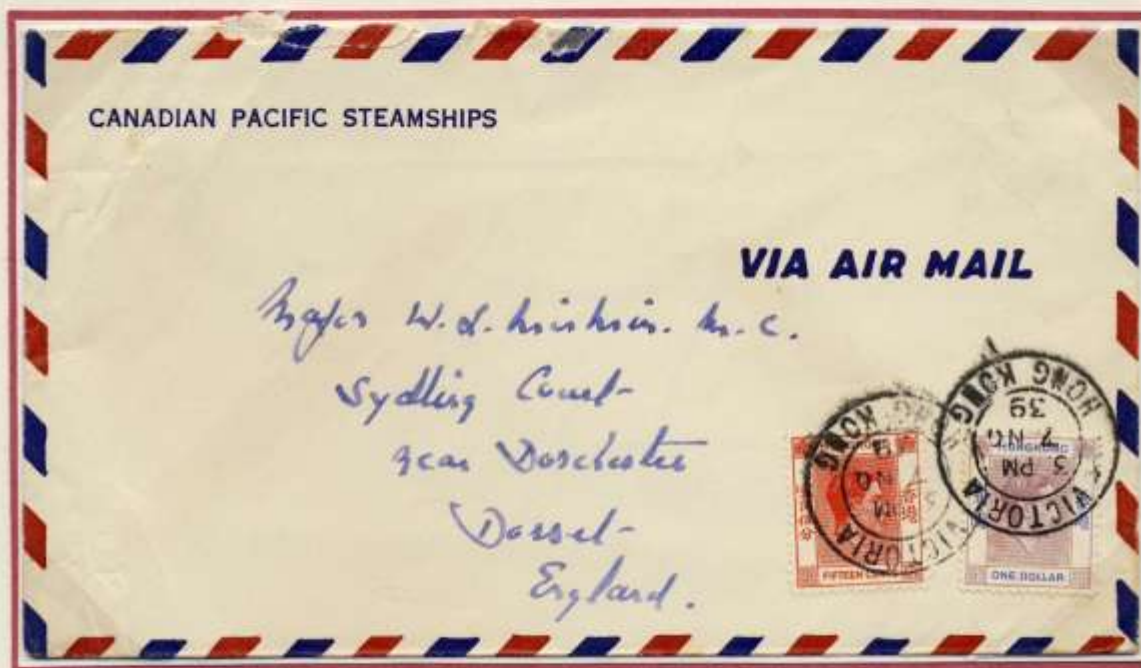 CANADIAN PACIFIC STEAMSHIPS
VIA AIR MAIL
Major W. L. M.C.
Sydling Court
near Dorchester
Dorset
England.
VICTORIA
HONG KONG
3 PM
7 NO
39
VICTORIA
KONG
PM
NO
HONG KONG
FIFTEEN CENTS
ONE DOLLAR